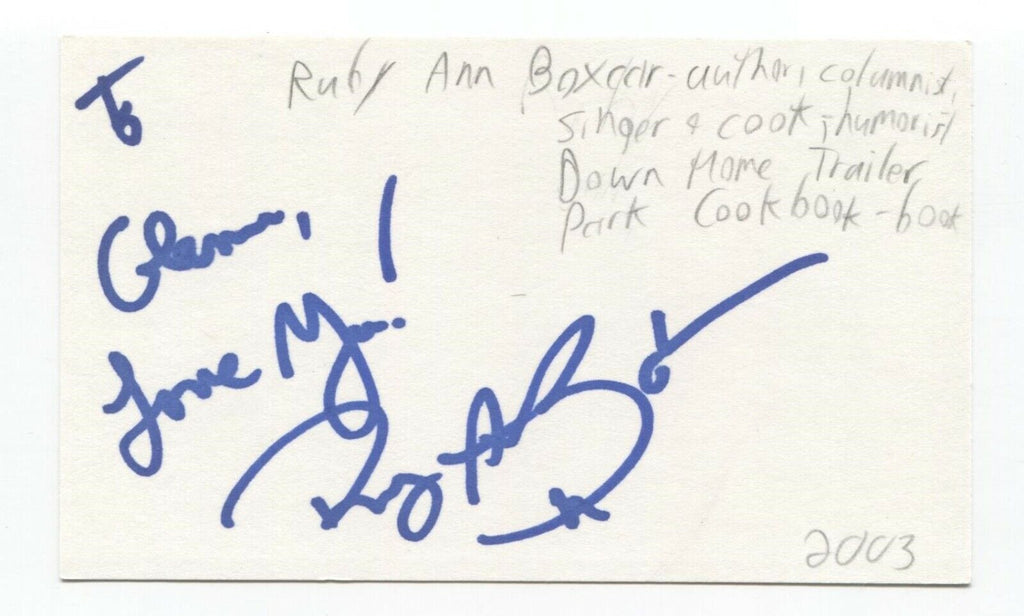 To
Ruby Ann Boxcar - author, columnist,
singer & cook, humorist
Down Home Trailer
Park Cookbook - book
Glenn,
Love Ya!
Ruby Ann Box
2003